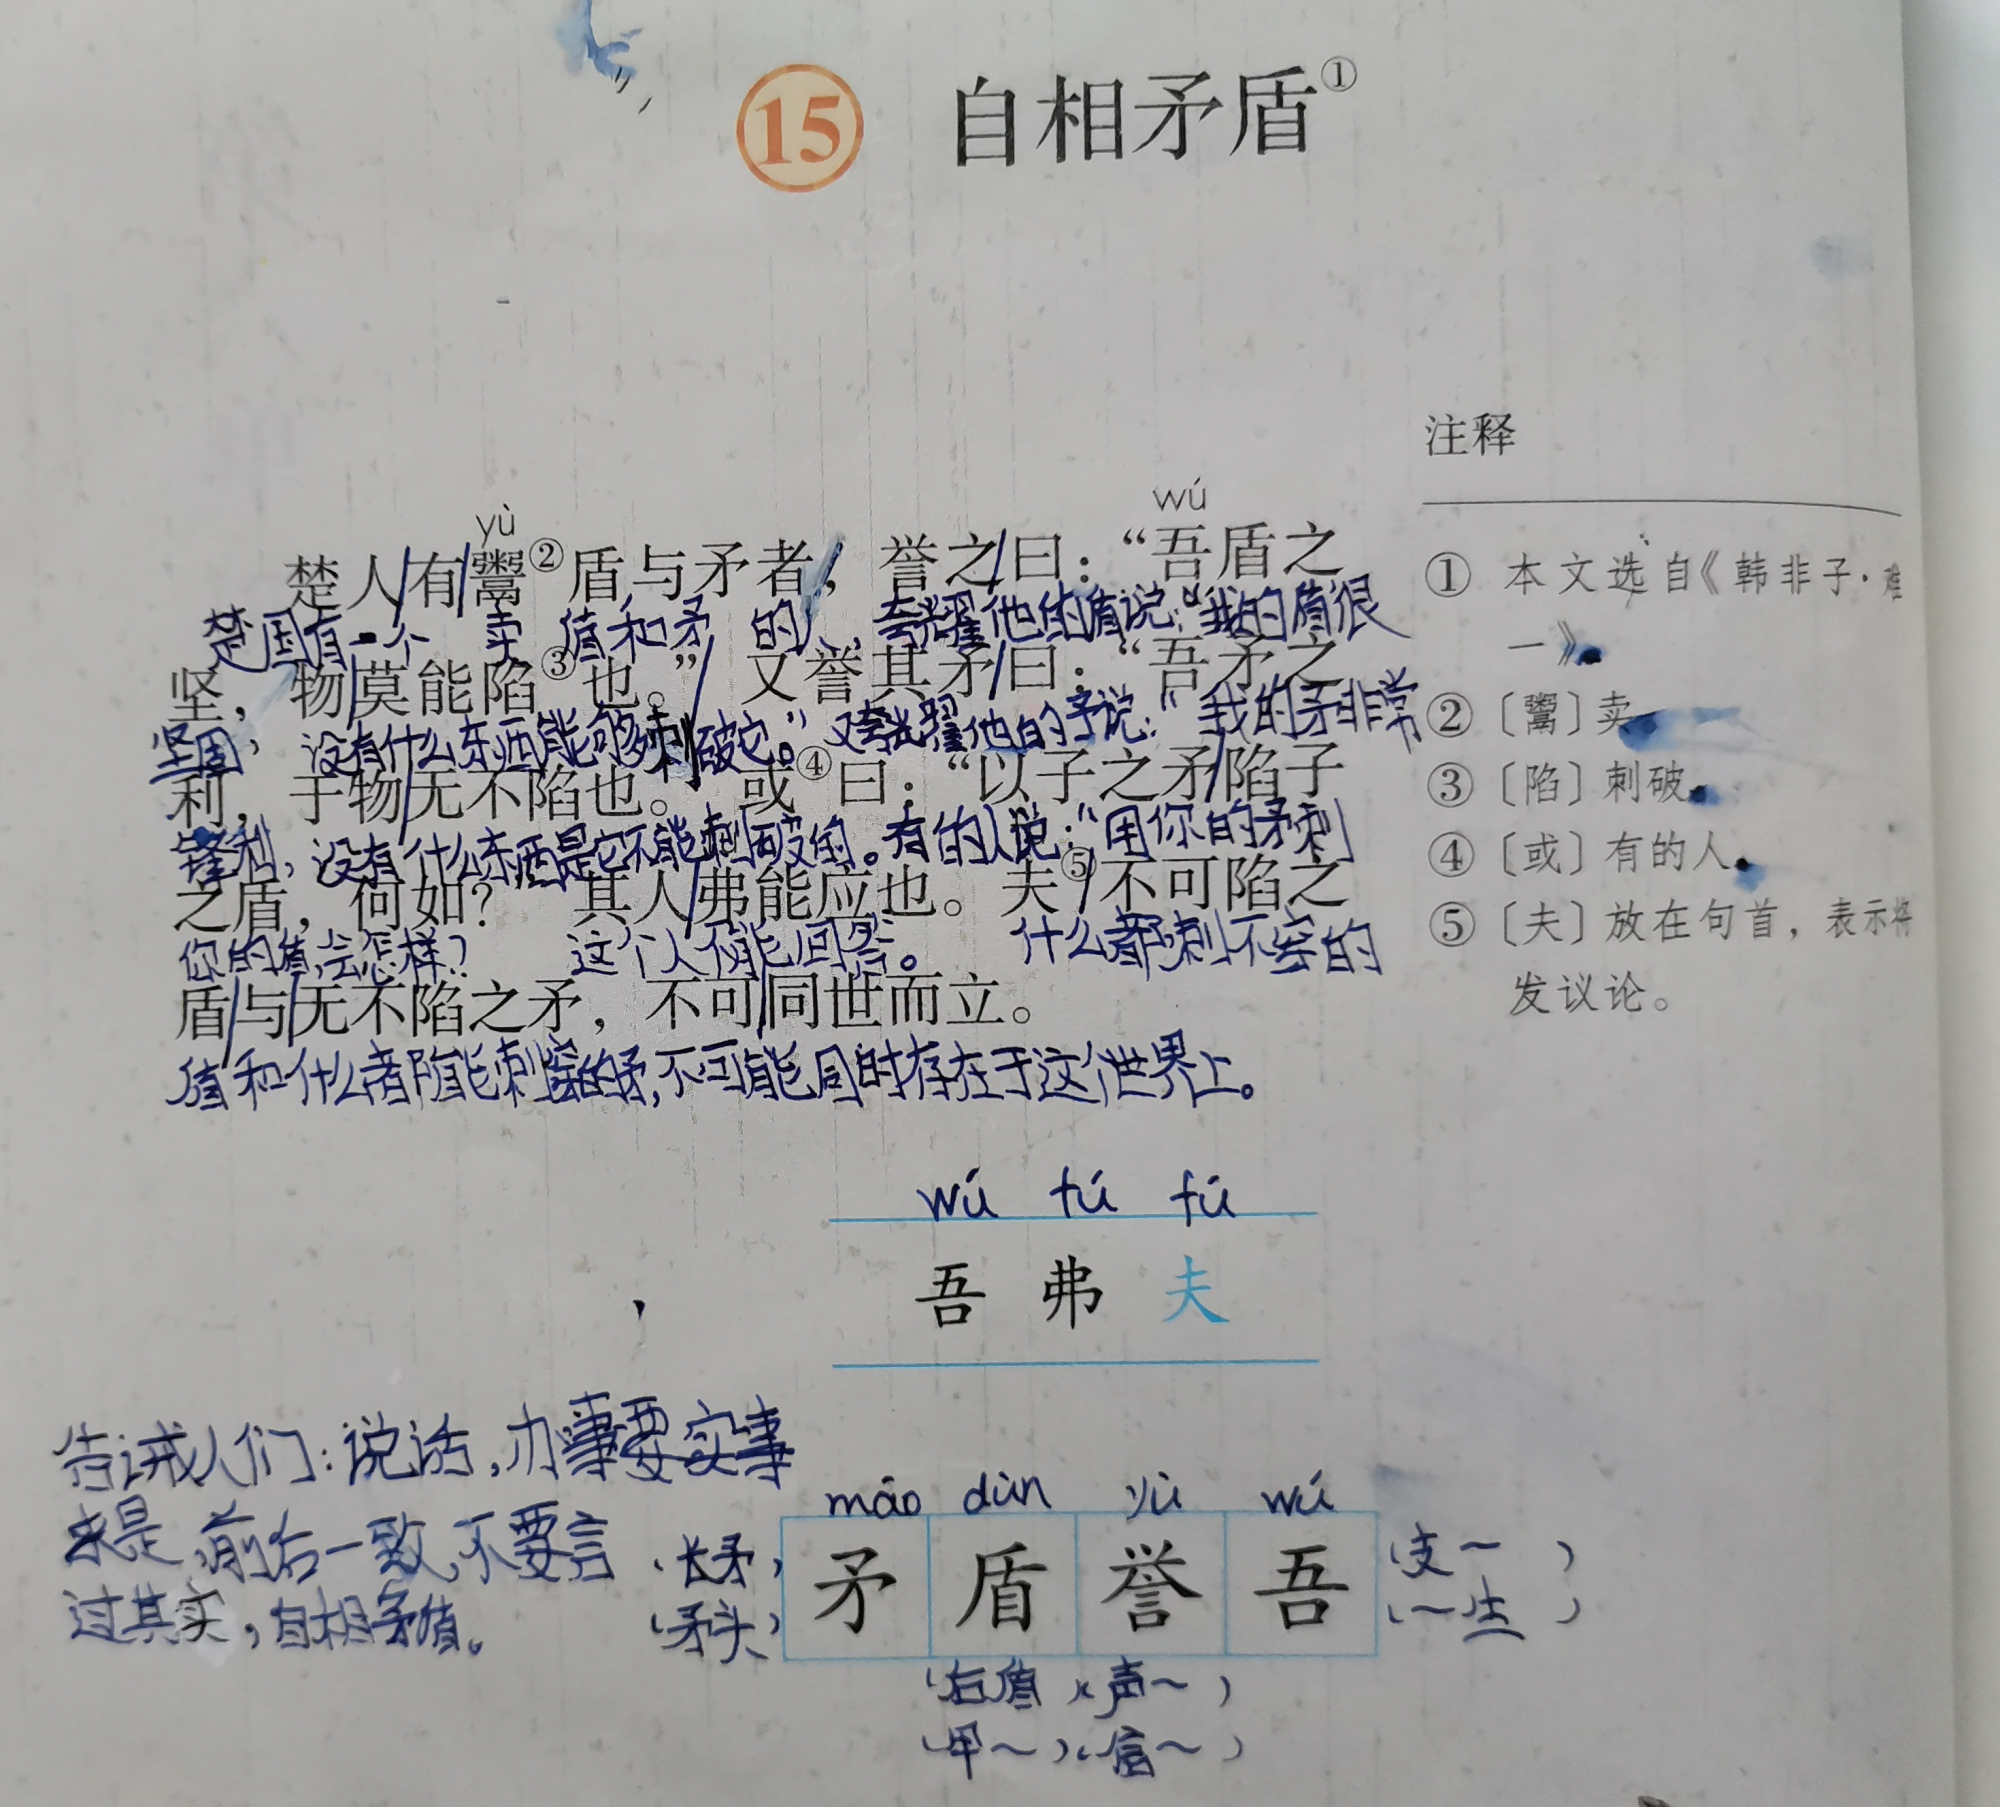 15 自相矛盾①
注释
yù wú
楚人有鬻②盾与矛者，誉之曰：“吾盾之
楚国有一个 卖 盾和矛 的人，夸耀他的盾说：“我的盾很
坚，物莫能陷③也。”又誉其矛曰：“吾矛之
坚固，没有什么东西能够刺破它。”又夸耀他的矛说：“我的矛非常
利，于物无不陷也。”或④曰：“以子之矛陷子
锋利，没有什么东西是它不能刺破的。有的人说：“用你的矛刺
之盾，何如？”其人弗能应也。夫⑤不可陷之
你的盾，会怎样？ 这个人不能回答。 什么都刺不穿的
盾与无不陷之矛，不可同世而立。
盾和什么都能刺穿的矛，不可能同时存在于这个世界上。
① 本文选自《韩非子·难
一》。
② 〔鬻〕卖。
③ 〔陷〕刺破。
④ 〔或〕有的人。
⑤ 〔夫〕放在句首，表示将
发议论。
wú fú fú
吾 弗 夫
告诫人们：说话，办事要实事
求是，前后一致，不要言
过其实，自相矛盾。
máo dùn yù wú
（长矛） 矛 盾 誉 吾 （支一）
（矛头） （一生）
（右盾）（声～）
（甲～）（信～）